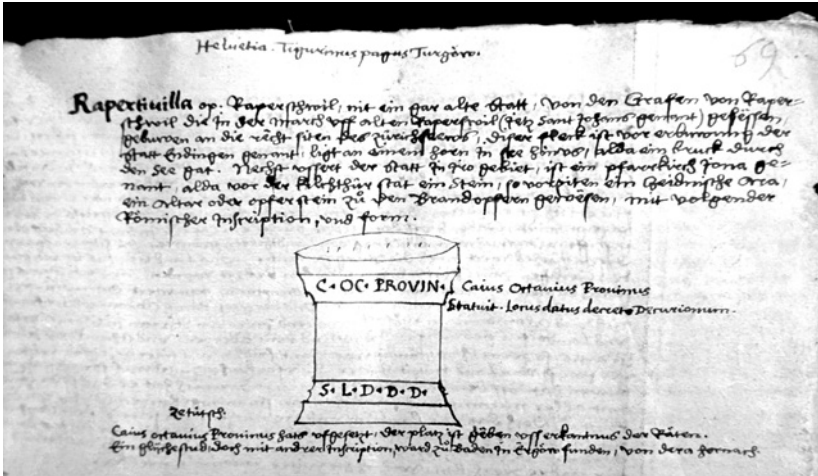 Helvetia. Tigurinus pagus Turgöw.
69
Rapertivilla op. Raperschwil, nit ein gar alte Statt, von den Grafen von Raper-
schwil die in der March uff alten Raperswil (jetz Sant Johans genant) gesessen,
gebuwen an die recht siten des Zürichsewes, diser fleck ist vor erbuwung der
statt Endingen genant, ligt an einem horn in see hinus, alda ein bruck durch
den see gat. Nechst ussert der statt in iro gebiet, ist ein pfarrkirch Jona ge-
nant, alda vor der kilchthür stat ein stein, so vorziten ein Heidnische Ara,
ein Altar oder opferstein zu den Brandopfern gewesen, mit volgender
Römischer Inscription, und form.
C • OC • PROVIN • Caius Octavius Provinus
Statuit. Locus datus decreto Decurionum.
S • L • D • D • D •
Zetütsch.
Caius Octavius Provinus hats ufgesetzt, der platz ist geben uss erkantnus der Räten.
Ein glyche stud, doch mit andrer Inscription ward zu Baden in Ergöw funden, von dera hernach.